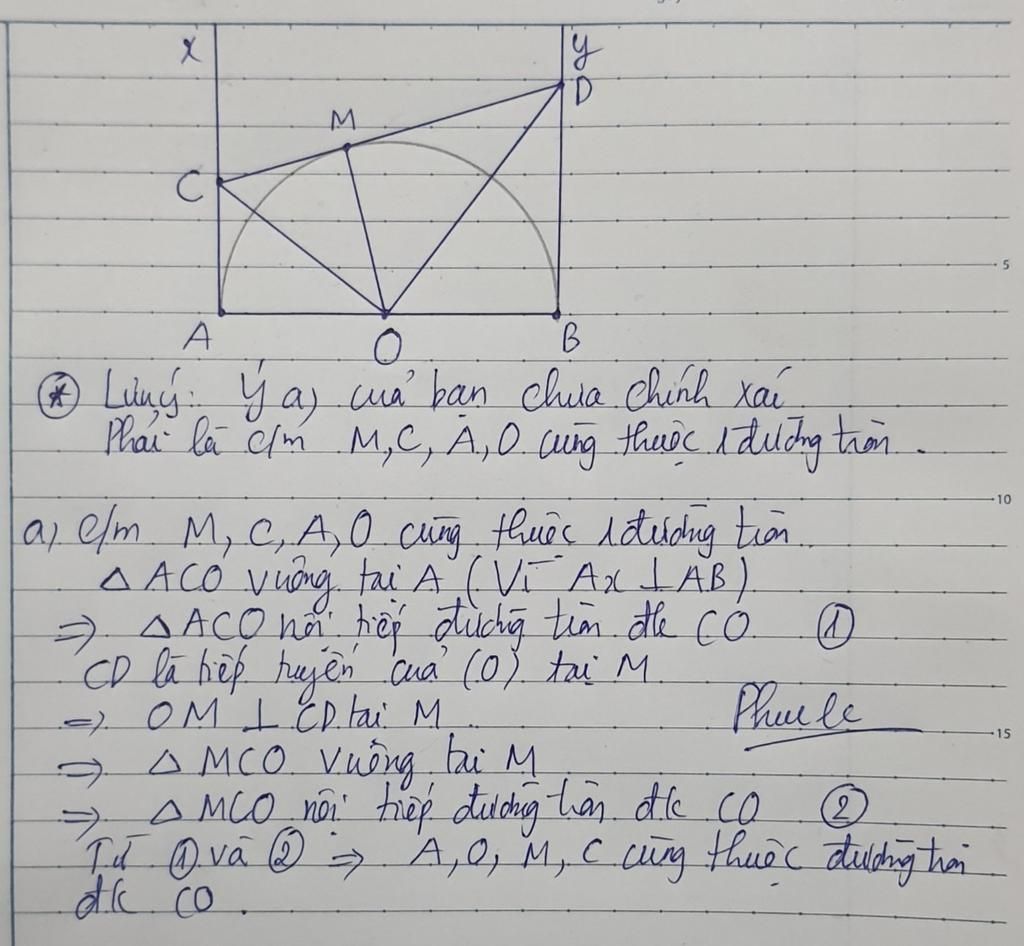 x y
D
M
C
A O B
* Lưu ý: Ý a) của bạn chưa chính xác
Phải là c/m M, C, A, O cùng thuộc 1 đường tròn.
5
10
a) c/m M, C, A, O cùng thuộc 1 đường tròn.
△ ACO vuông tại A (Vì Ax ⊥ AB)
=> △ ACO nội tiếp đường tròn đk CO ①
CD là tiếp tuyến của (O) tại M
=> OM ⊥ CD tại M
Phucle
15
=> △ MCO vuông tại M
=> △ MCO nội tiếp đường tròn đk CO ②
Từ ① và ② => A, O, M, C cùng thuộc đường tròn
đk CO.